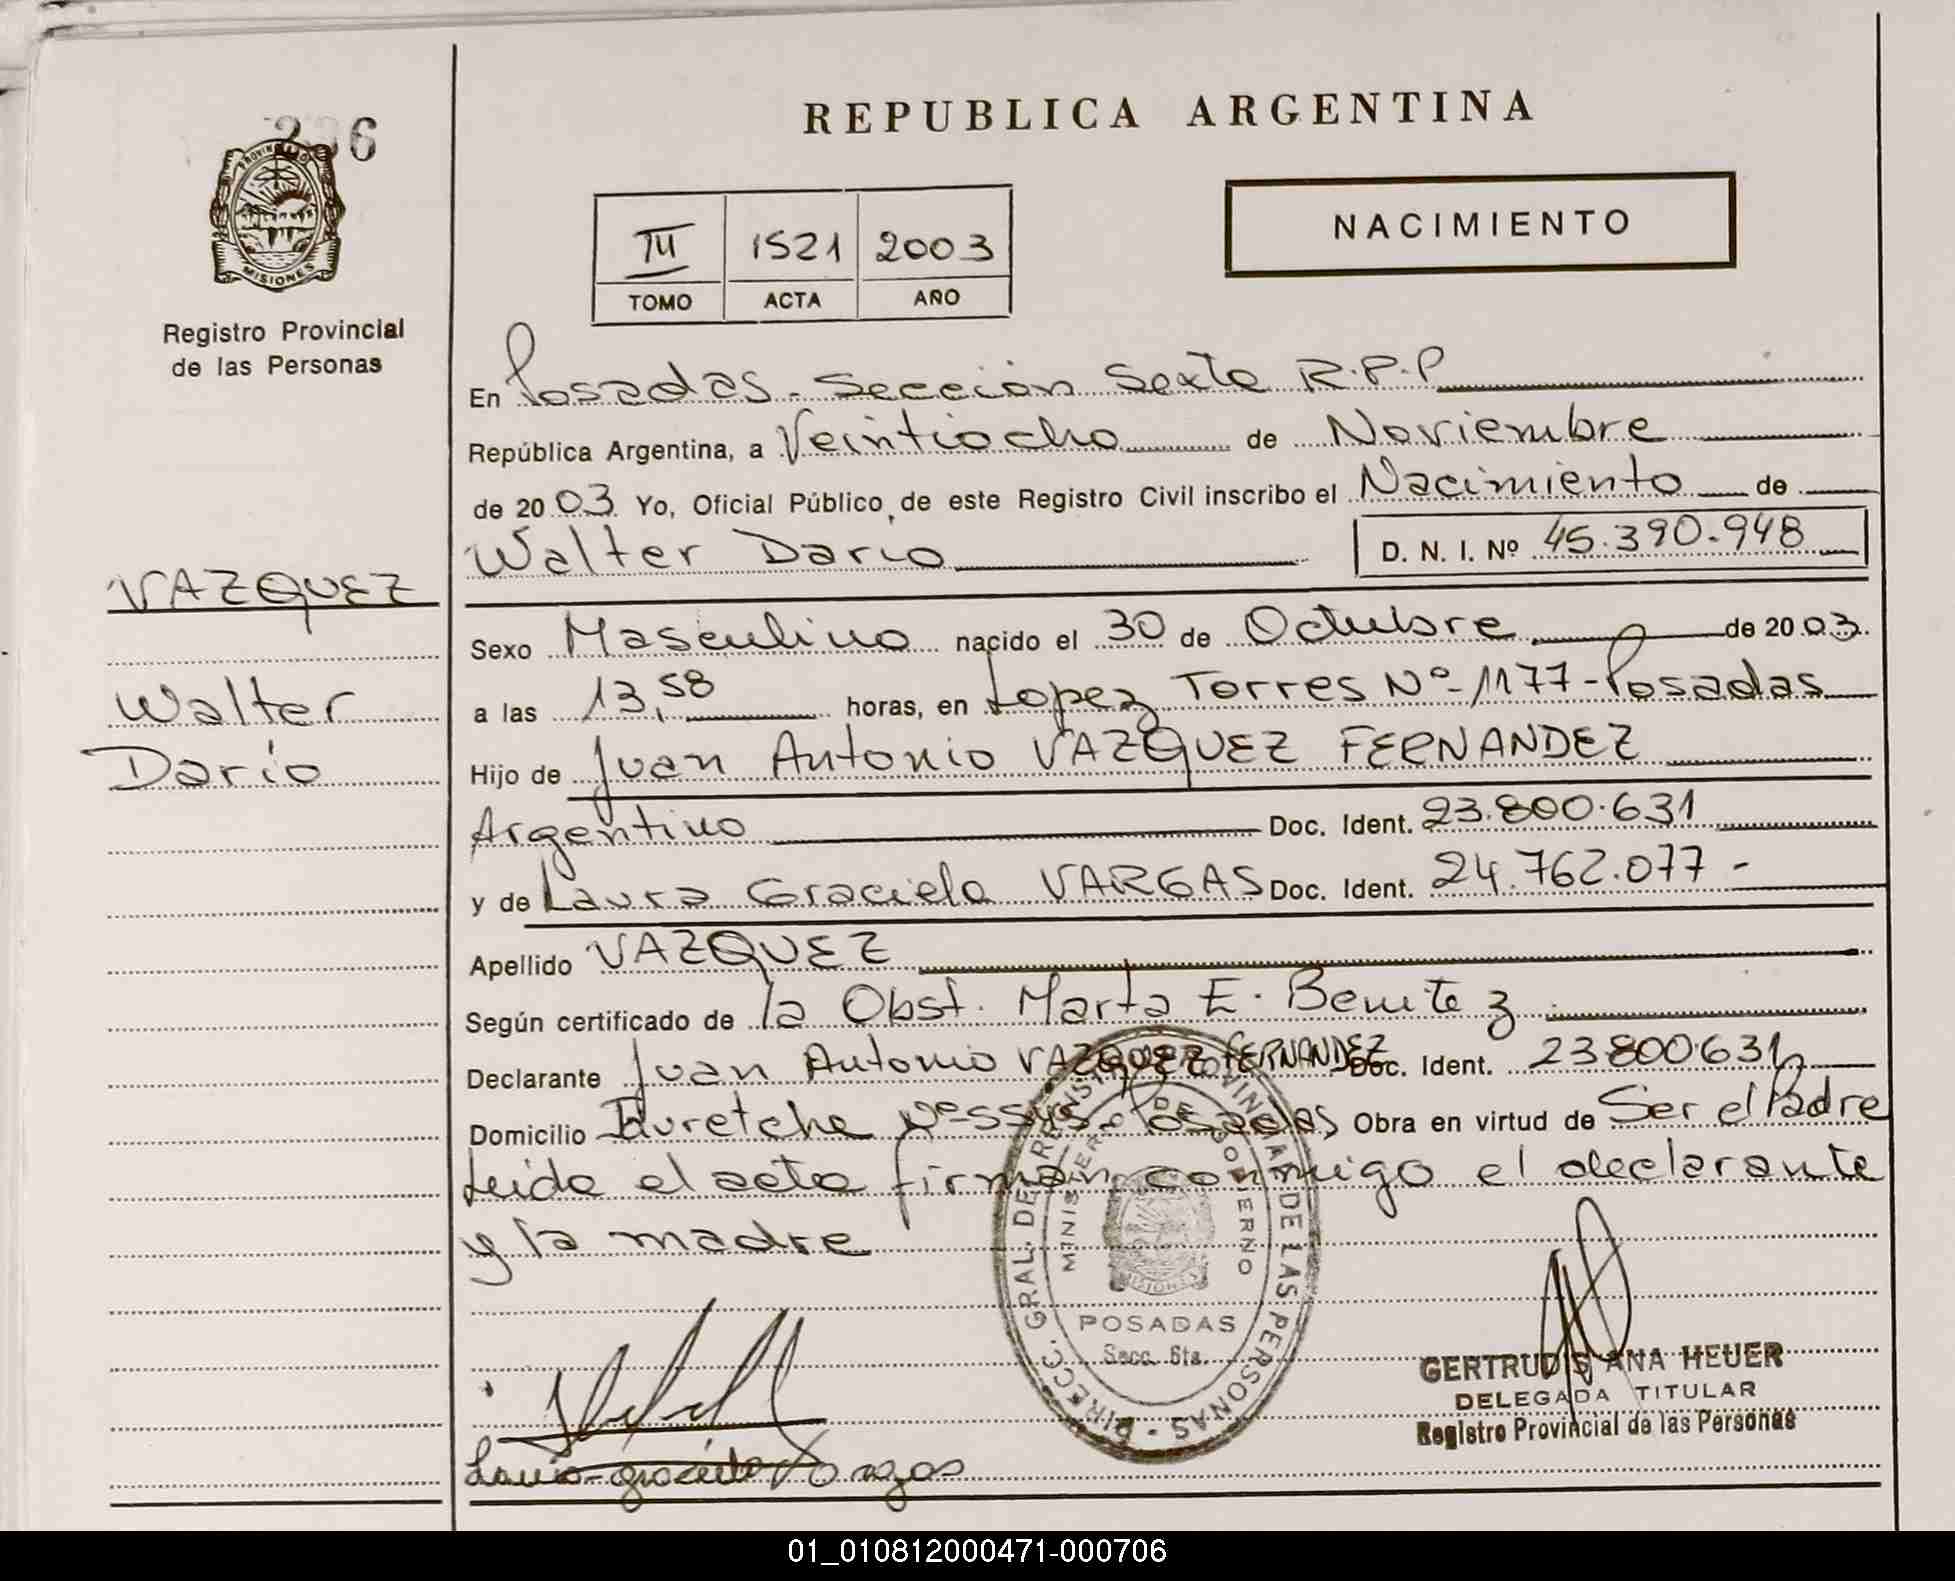 236
PROVINCIA DE
MISIONES
Registro Provincial
de las Personas
VAZQUEZ
Walter
Dario
REPUBLICA ARGENTINA
III 1521 2003
TOMO ACTA AÑO
NACIMIENTO
En Posadas - Sección Sexta R.P.P
República Argentina, a Veintiocho de Noviembre
de 2003 Yo, Oficial Público, de este Registro Civil inscribo el Nacimiento de
Walter Dario D. N. I. Nº 45.390.948
Sexo Masculino nacido el 30 de Octubre de 2003.
a las 13,58 horas, en Lopez Torres Nº-1177-Posadas
Hijo de Juan Antonio VAZQUEZ FERNANDEZ
Argentino Doc. Ident. 23.800.631
y de Laura Graciela VARGAS Doc. Ident. 24.762.077 -
Apellido VAZQUEZ
Según certificado de la Obst. Marta E. Benitez
Declarante Juan Antonio VAZQUEZ FERNANDEZ Doc. Ident. 23800631
Domicilio Posadas Obra en virtud de Ser el Padre
Leida el acta firman conmigo el declarante
y la madre
DIRECC. GRAL. DEL REGISTRO PROVINCIAL DE LAS PERSONAS
MINISTERIO DE GOBIERNO
MISIONES
POSADAS
Secc. 6ta.
GERTRUDIS ANA HEUER
DELEGADA TITULAR
Registro Provincial de las Personas
01_010812000471-000706